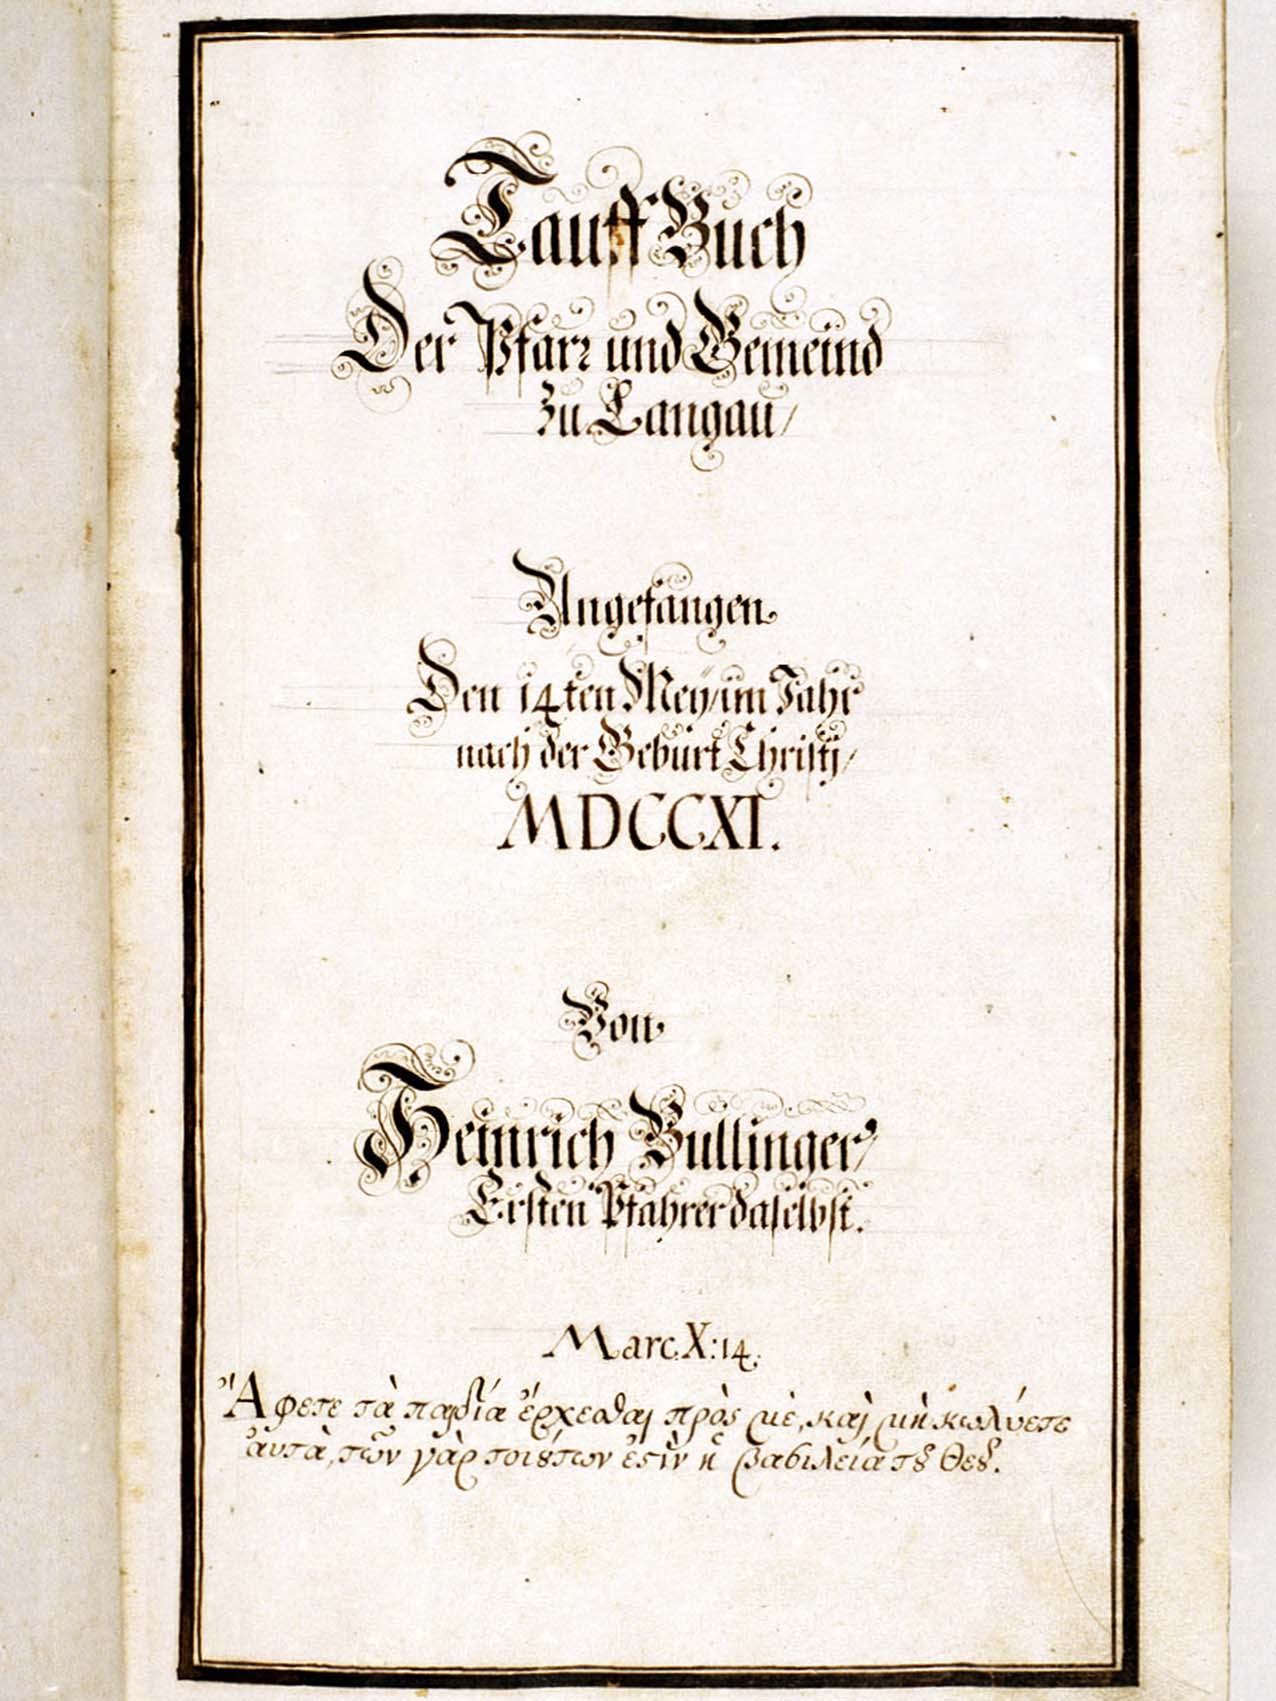 Tauff Buch
Der Pfarr und Gemeind
zu Langau/
Angefangen
Den 14ten Meÿ/im Jahr
nach der Geburt Christj/
MDCCXI.
Von
Heinrich Bullinger/
Ersten Pfahrer daselbst.
Marc. X:14.
Ἄφετε τὰ παιδία ἔρχεσθαι πρός με, καὶ μὴ κωλύετε
ἀυτὰ, τῶν γὰρ τοιȣ́των ἐςὶν ἡ βασιλεία τȣ͂ Θεȣ͂.